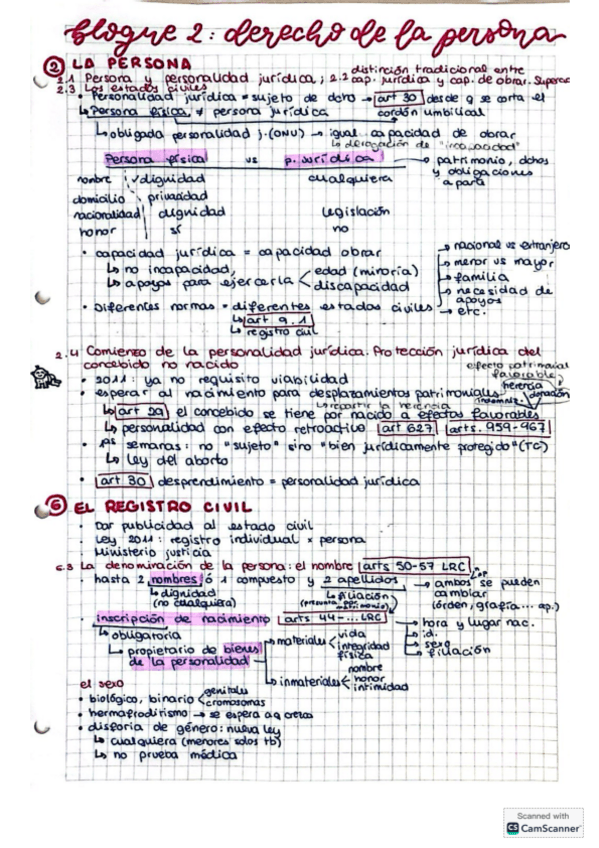 Bloque 2: derecho de la persona
② LA PERSONA
2.1 Persona y personalidad jurídica; 2.2 distinción tradicional entre cap. jurídica y cap. de obrar. Superar
2.3 Los estados civiles
• Personalidad jurídica = sujeto de dcho → art 30 desde q se corta el cordón umbilical
↳ Persona física ≠ persona jurídica
↳ obligada personalidad j. (ONU) → igual capacidad de obrar
↳ derogación de "incapacidad"
Persona física vs p. jurídica → patrimonio, dchos y obligaciones aparte
nombre ✓ dignidad cualquiera
domicilio privacidad
nacionalidad dignidad legislación
honor sí no
• capacidad jurídica = capacidad obrar
↳ no incapacidad,
↳ apoyos para ejercerla < edad (minoría) discapacidad
• Diferentes normas = diferentes estados civiles
→ nacional vs extranjero
→ menor vs mayor
→ familia
→ necesidad de apoyos
→ etc.
↳ art 9.1
↳ registro civil
2.4 Comienzo de la personalidad jurídica. Protección jurídica del concebido no nacido
• 2011: ya no requisito viabilidad
efecto patrimonial favorable:
• esperar al nacimiento para desplazamientos patrimoniales
herencia donación indemniz.
↳ repartir la herencia
↳ art 29 el concebido se tiene por nacido a efectos favorables
↳ personalidad con efecto retroactivo art 627 arts. 959-967
• semanas: no "sujeto" sino "bien jurídicamente protegido" (TC)
↳ Ley del aborto
• art 30 desprendimiento = personalidad jurídica
⑥ EL REGISTRO CIVIL
• Dar publicidad al estado civil
• Ley 2011: registro individual x persona
• Ministerio justicia
6.3 La denominación de la persona: el nombre arts 50-57 LRC
• hasta 2 nombres ó 1 compuesto y 2 apellidos → ambos se pueden cambiar (órden, grafía... ap.)
↳ dignidad (no cualquiera)
↳ filiación (presunta por matrimonio)
• inscripción de nacimiento arts 44-... LRC
→ hora y lugar nac.
↳ id.
↳ sexo
↳ filiación
↳ obligatoria
↳ propietario de bienes de la personalidad
→ materiales < vida integridad física
→ inmateriales < nombre honor intimidad
el sexo
• biológico, binario < genitales cromosomas
• hermafroditismo → se espera a q crezca
• disforia de género: nueva ley
↳ cualquiera (menores solos tb)
↳ no prueba médica
Scanned with
CS CamScanner